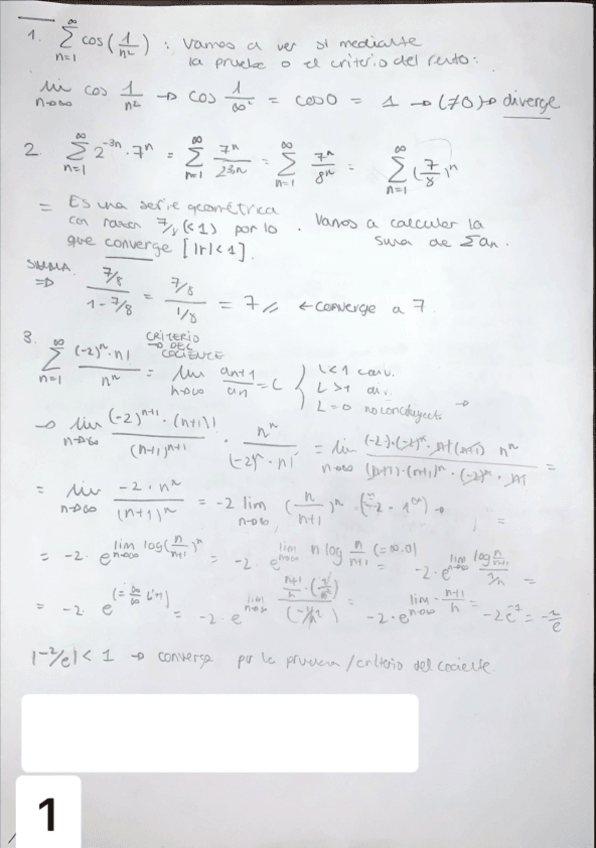 1. ∞ Σ n=1 cos(1/n²) : Vamos a ver si mediante
la prueba o el criterio del resto:
lim n→∞ cos 1/n² → cos 1/∞² = cos 0 = 1 → (≠0) → diverge
2. ∞ Σ n=1 2^-3n · 7^n = ∞ Σ n=1 7^n/2^3n = ∞ Σ n=1 7^n/8^n = ∞ Σ n=1 (7/8)^n
= Es una serie geométrica
con razon 7/8 (<1) por lo . Vamos a calcular la
que converge [|r|<1]. suma de Σan.
SUMA ⇒ 7/8 / 1 - 7/8 = 7/8 / 1/8 = 7 // ← converge a 7.
3. ∞ Σ n=1 (-2)^n · n! / n^n = CRITERIO → DEL COCIENTE lim n→∞ an+1/an = L { L<1 conv.
L>1 di.
L=0 →
→ lim n→∞ (-2)^n+1 · (n+1)! / (n+1)^n+1 · n^n / (-2)^n · n! = lim n→∞ (-2)·(-2)^n · n! (n+1) n^n / (n+1)·(n+1)^n · (-2)^n · n! =
= lim n→∞ -2 · n^n / (n+1)^n = -2 lim n→∞ (n/n+1)^n (= -2 · 1^∞) → =
= -2 · e^lim n→∞ log(n/n+1)^n = -2 · e^lim n→∞ n log n/n+1 (=∞·0) = -2 · e^lim n→∞ log n/n+1 / 1/n =
= -2 · e^(=∞/∞ L'H) = -2 · e^lim n→∞ = -2 · e^lim n→∞ - n+1/n = -2e^-1 = -2/e
|-2/e| < 1 → converge por la prueba/criterio del cociente.
1